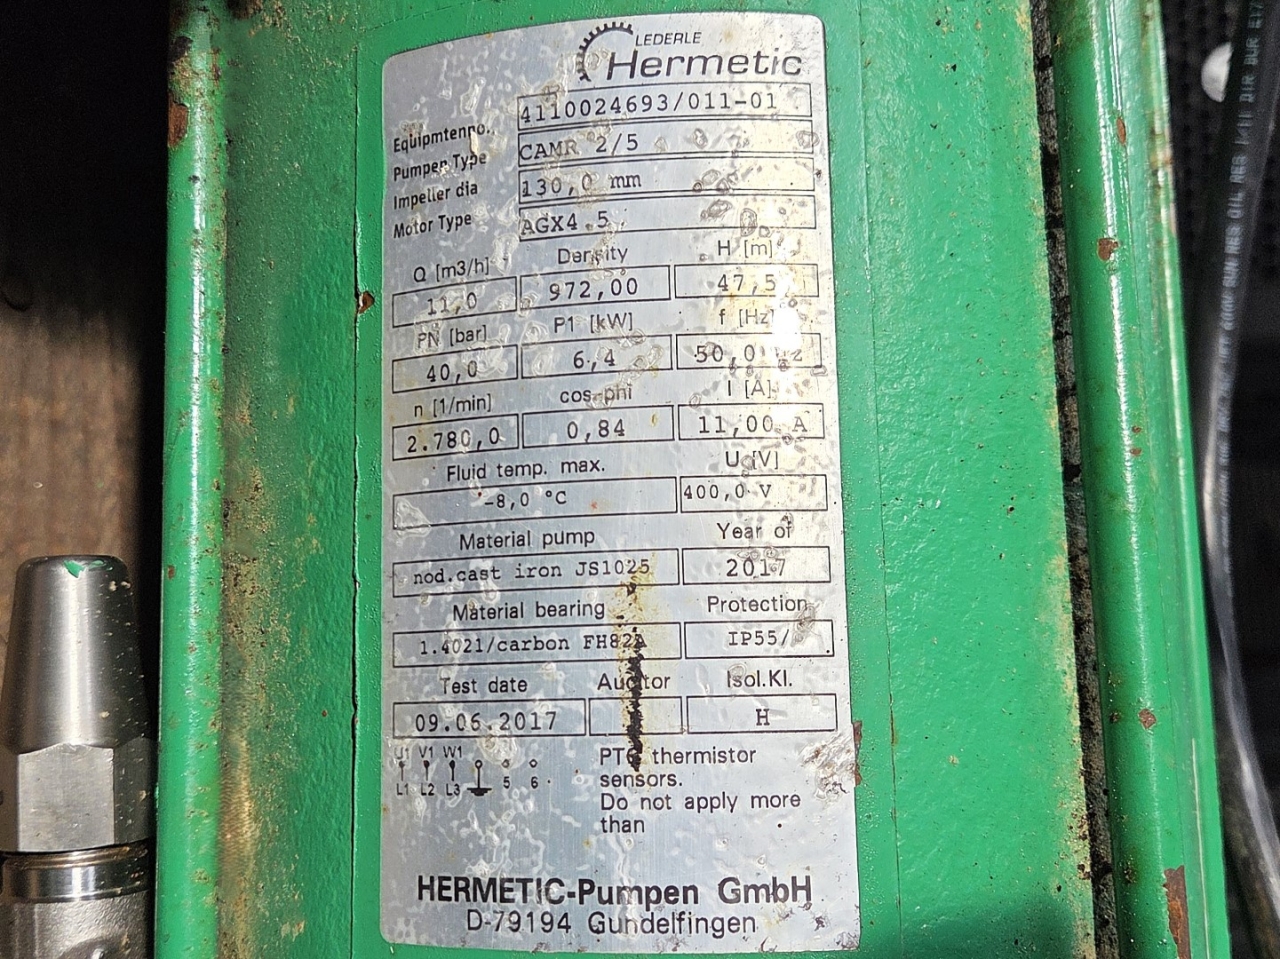 LEDERLE
Hermetic
Equipmtenno.. 4110024693/011-01
Pumpen Type CAMR 2/5
Impeller dia 130,0 mm
Motor Type AGX4.5
Q [m3/h] Density H [m]
11,0 972,00 47,5
PN [bar] P1 [kW] f [Hz]
40,0 6,4 50,0 Hz
n [1/min] cos phi I [A]
2.780,0 0,84 11,00 A
Fluid temp. max. U [V]
-8,0 °C 400,0 V
Material pump Year of
nod.cast iron JS1025 2017
Material bearing Protection
1.4021/carbon FH82A IP55/
Test date Auditor Isol.Kl.
09.06.2017 H
U1 V1 W1
L1 L2 L3 5 6
PTC thermistor
sensors.
Do not apply more
than
HERMETIC-Pumpen GmbH
D-79194 Gundelfingen